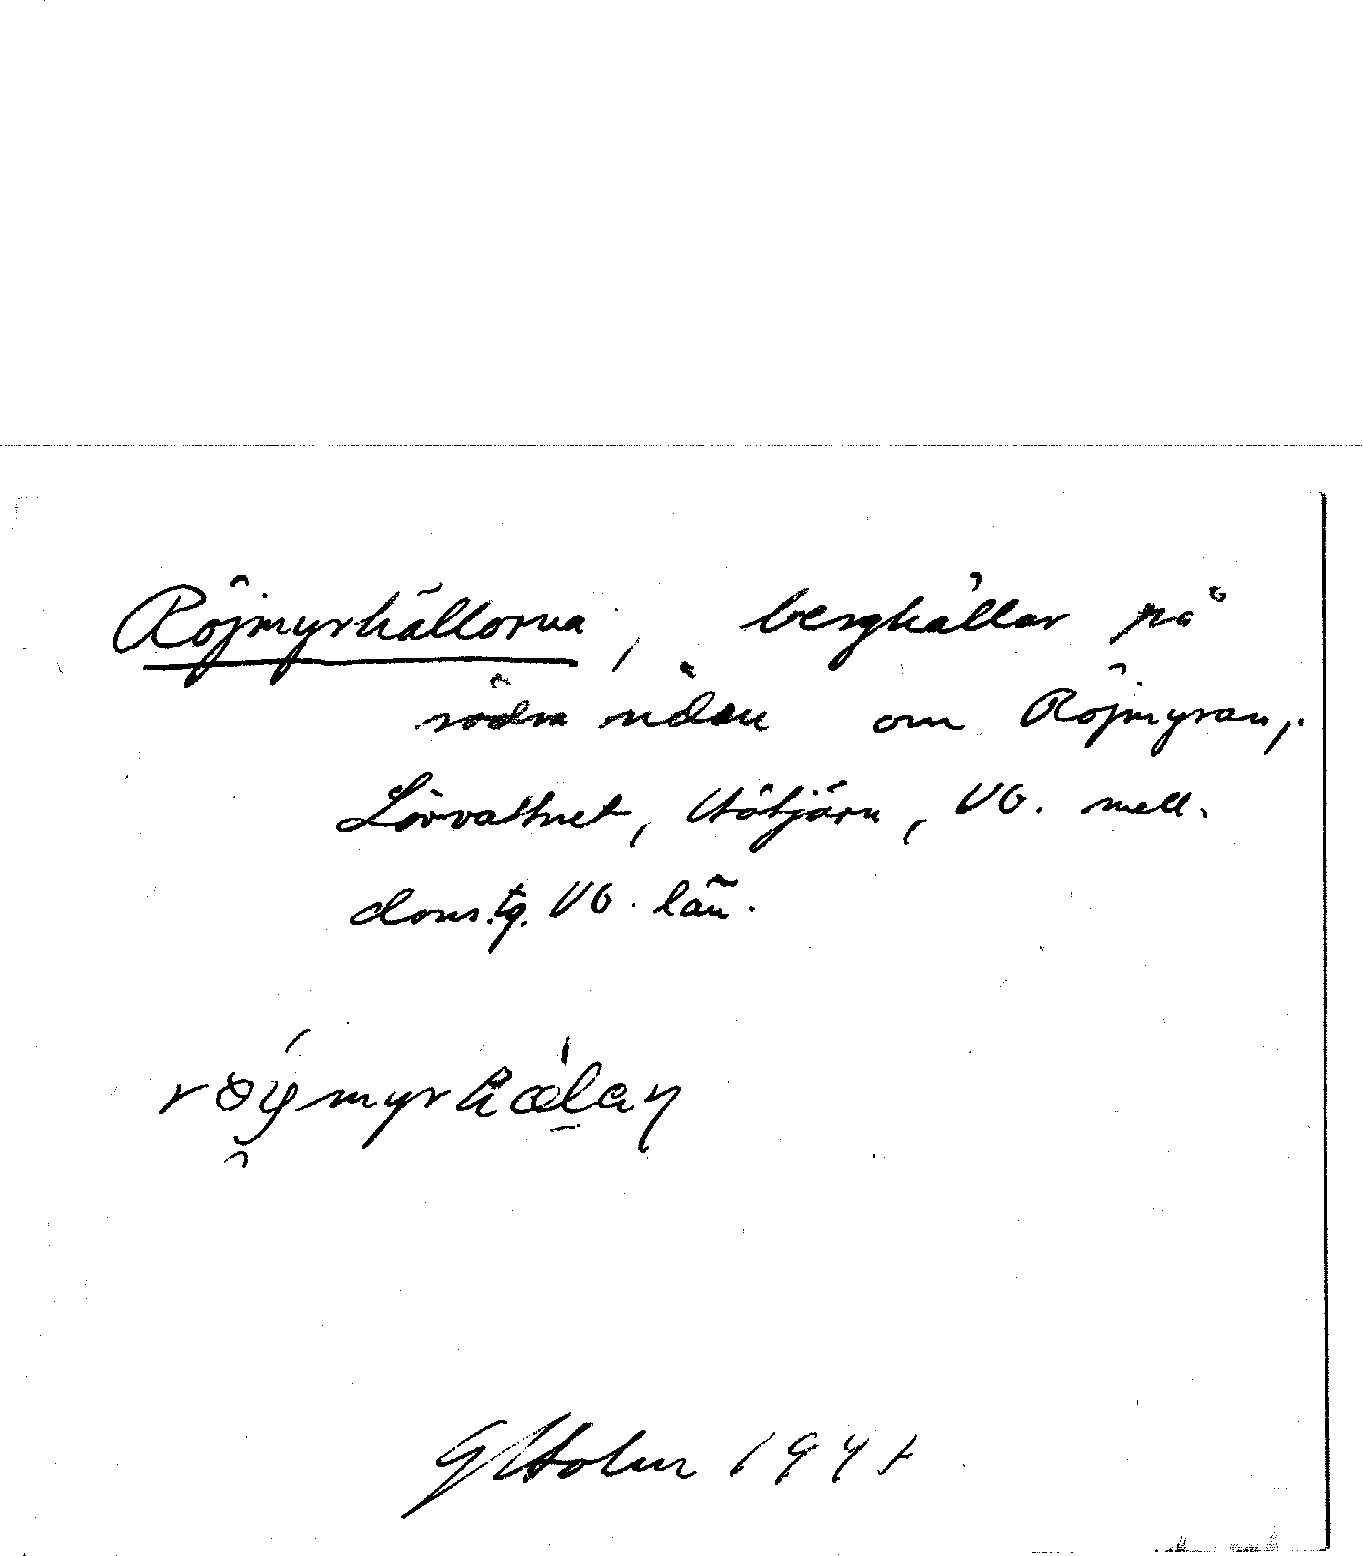 Röjmyrhällorna, berghällar på
södra sidan om Röjmyran,
Lövvattnet, Hötjärn, VB. mell.
doms.tg. VB. län.
GHolm 1941